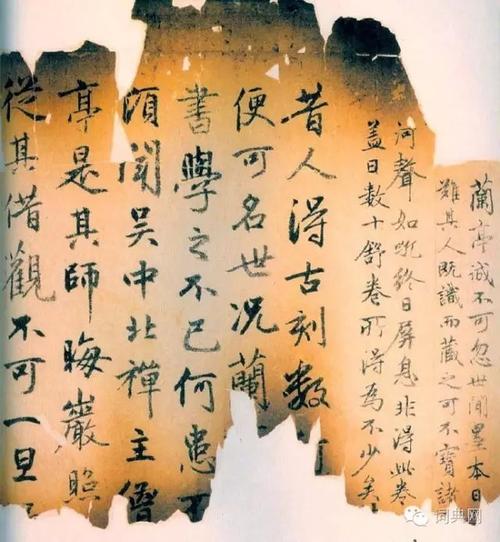 蘭亭誠不可忽世間墨本日
難其人既識而藏之可不寶諸
河聲如吼終日屏息非得此卷
蓋日數十舒卷所得為不少矣
昔人得古刻數
便可名世况蘭
書學之不已何患
頃聞吳中北禪主僧
亭是其師晦巖照
從其借觀不可一旦
词典网